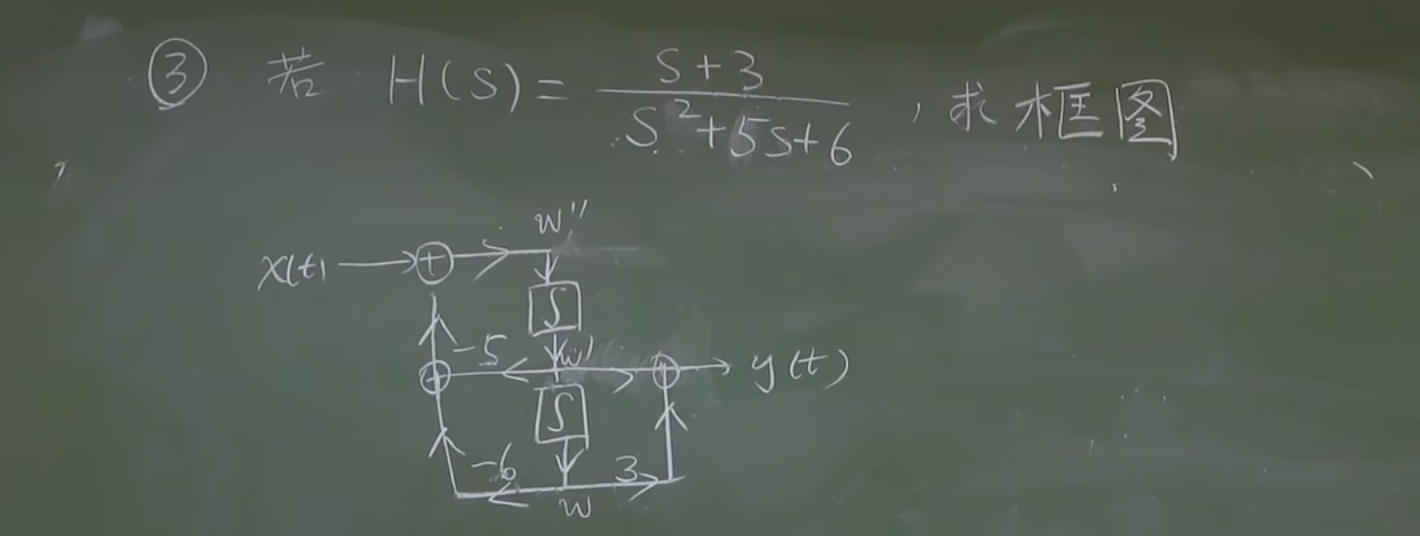 ③ 若 H(S) = \frac{S+3}{S^2+5S+6} , 求框图
w''
x(t) + 
∫
-5 w' + + y(t)
∫
-6 3
w